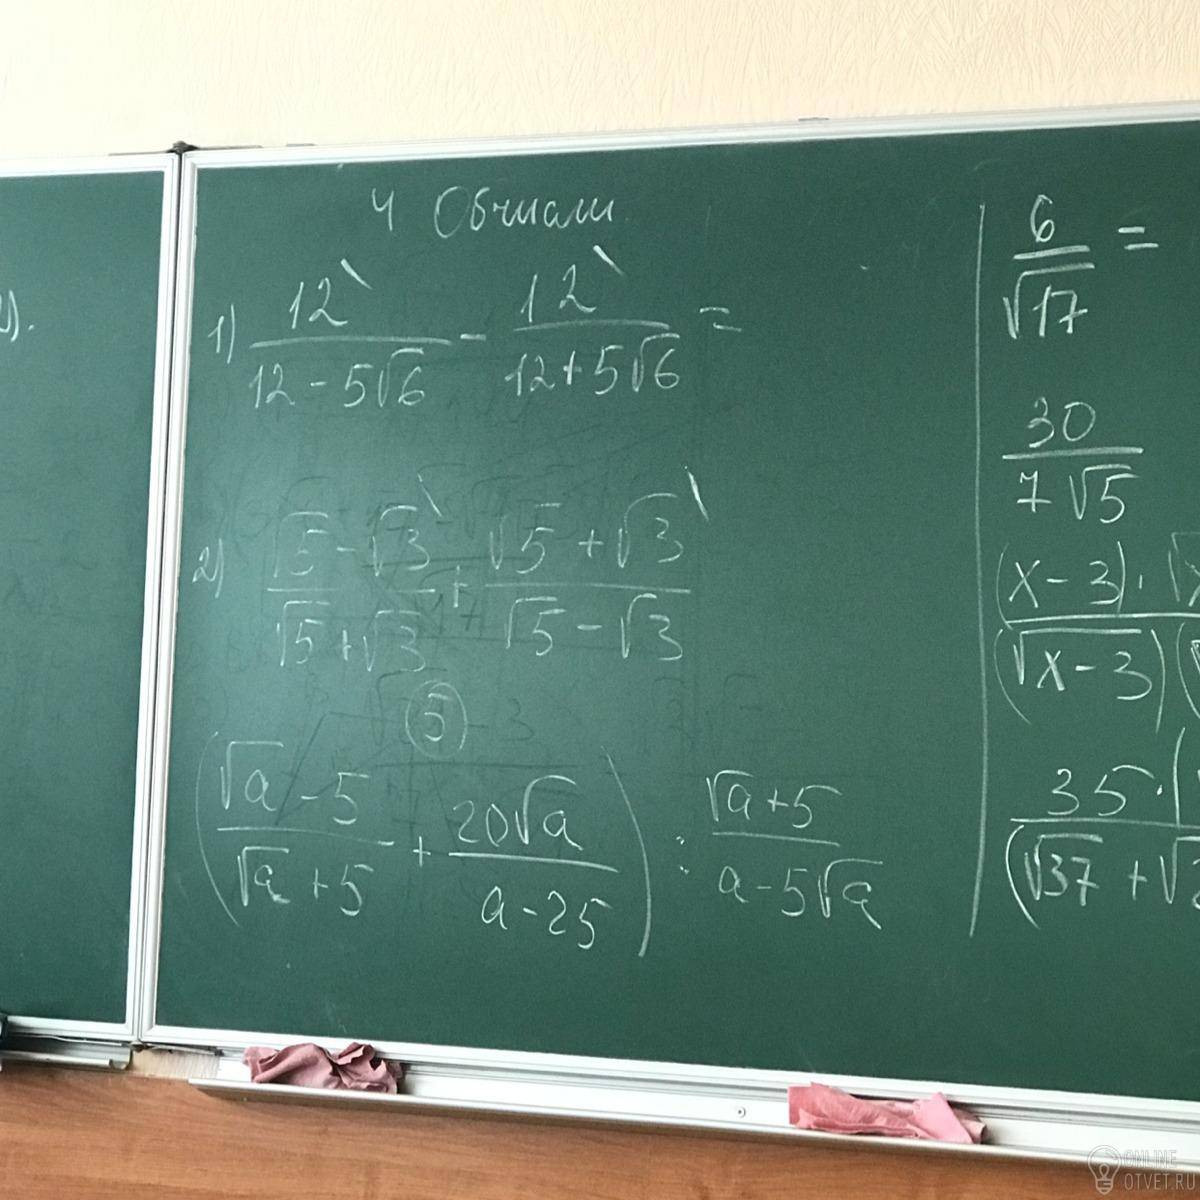 4 Обчисли
1) 12/(12-5√6) - 12/(12+5√6) =
2) (√5-√3)/(√5+√3) + (√5+√3)/(√5-√3)
5
((√a-5)/(√a+5) + 20√a/(a-25)) : (√a+5)/(a-5√a)
6/√17 =
30/(7√5)
(x-3)·√x
(√x-3)(
35·(
(√37+√
2).
ONLINE
OTVET.RU